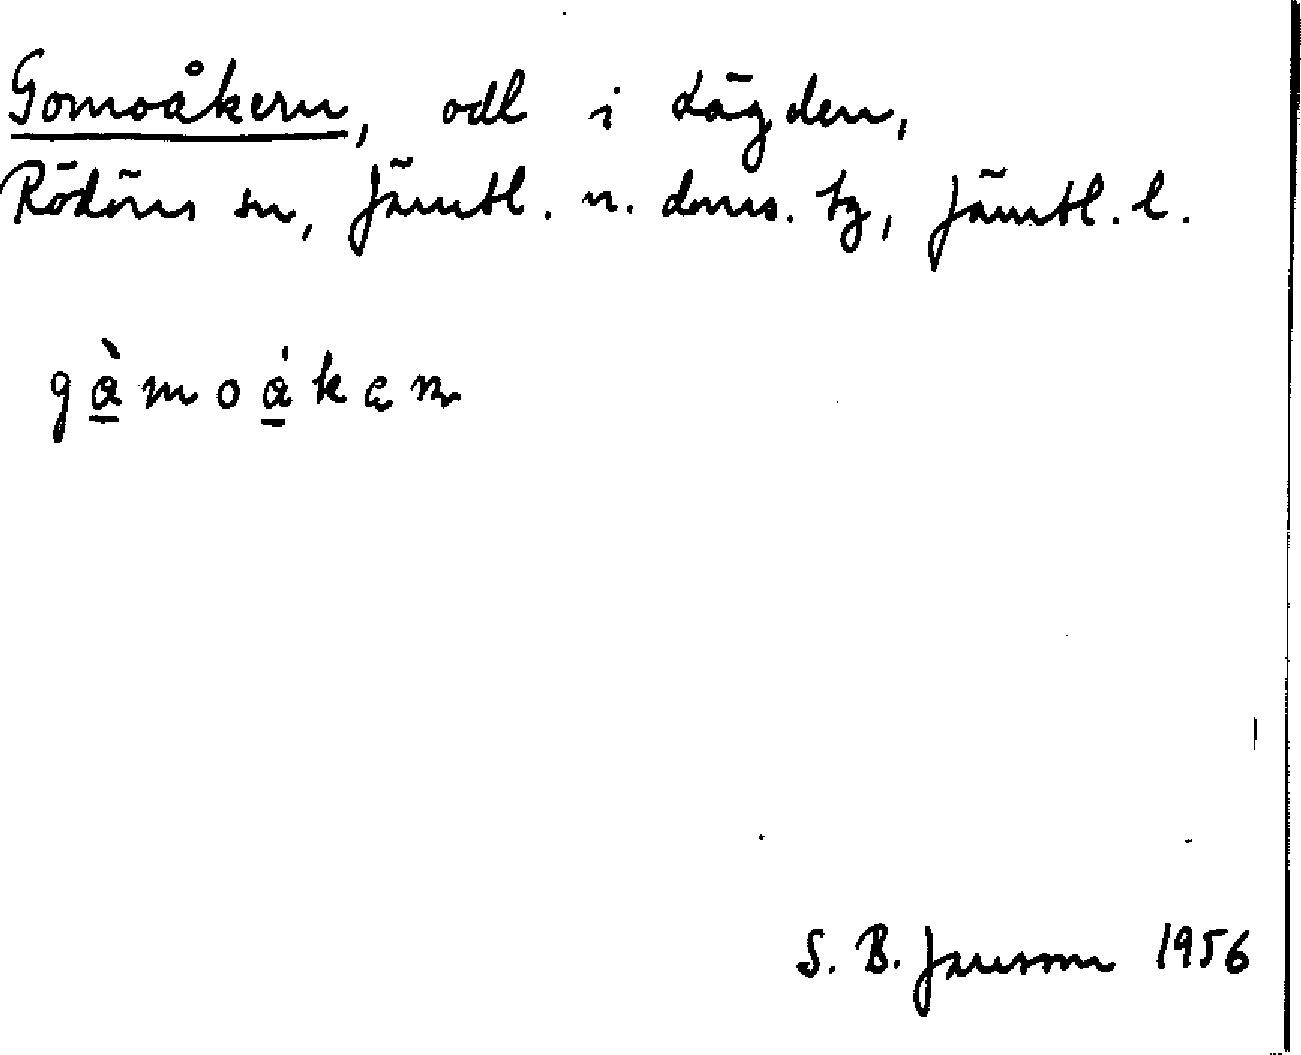 Gomoåkern, odl i Lägden,
Rödöns sn, Jämtl. n. doms. tg, Jämtl. l.
gàmoákεn
S. B. Jansson 1956